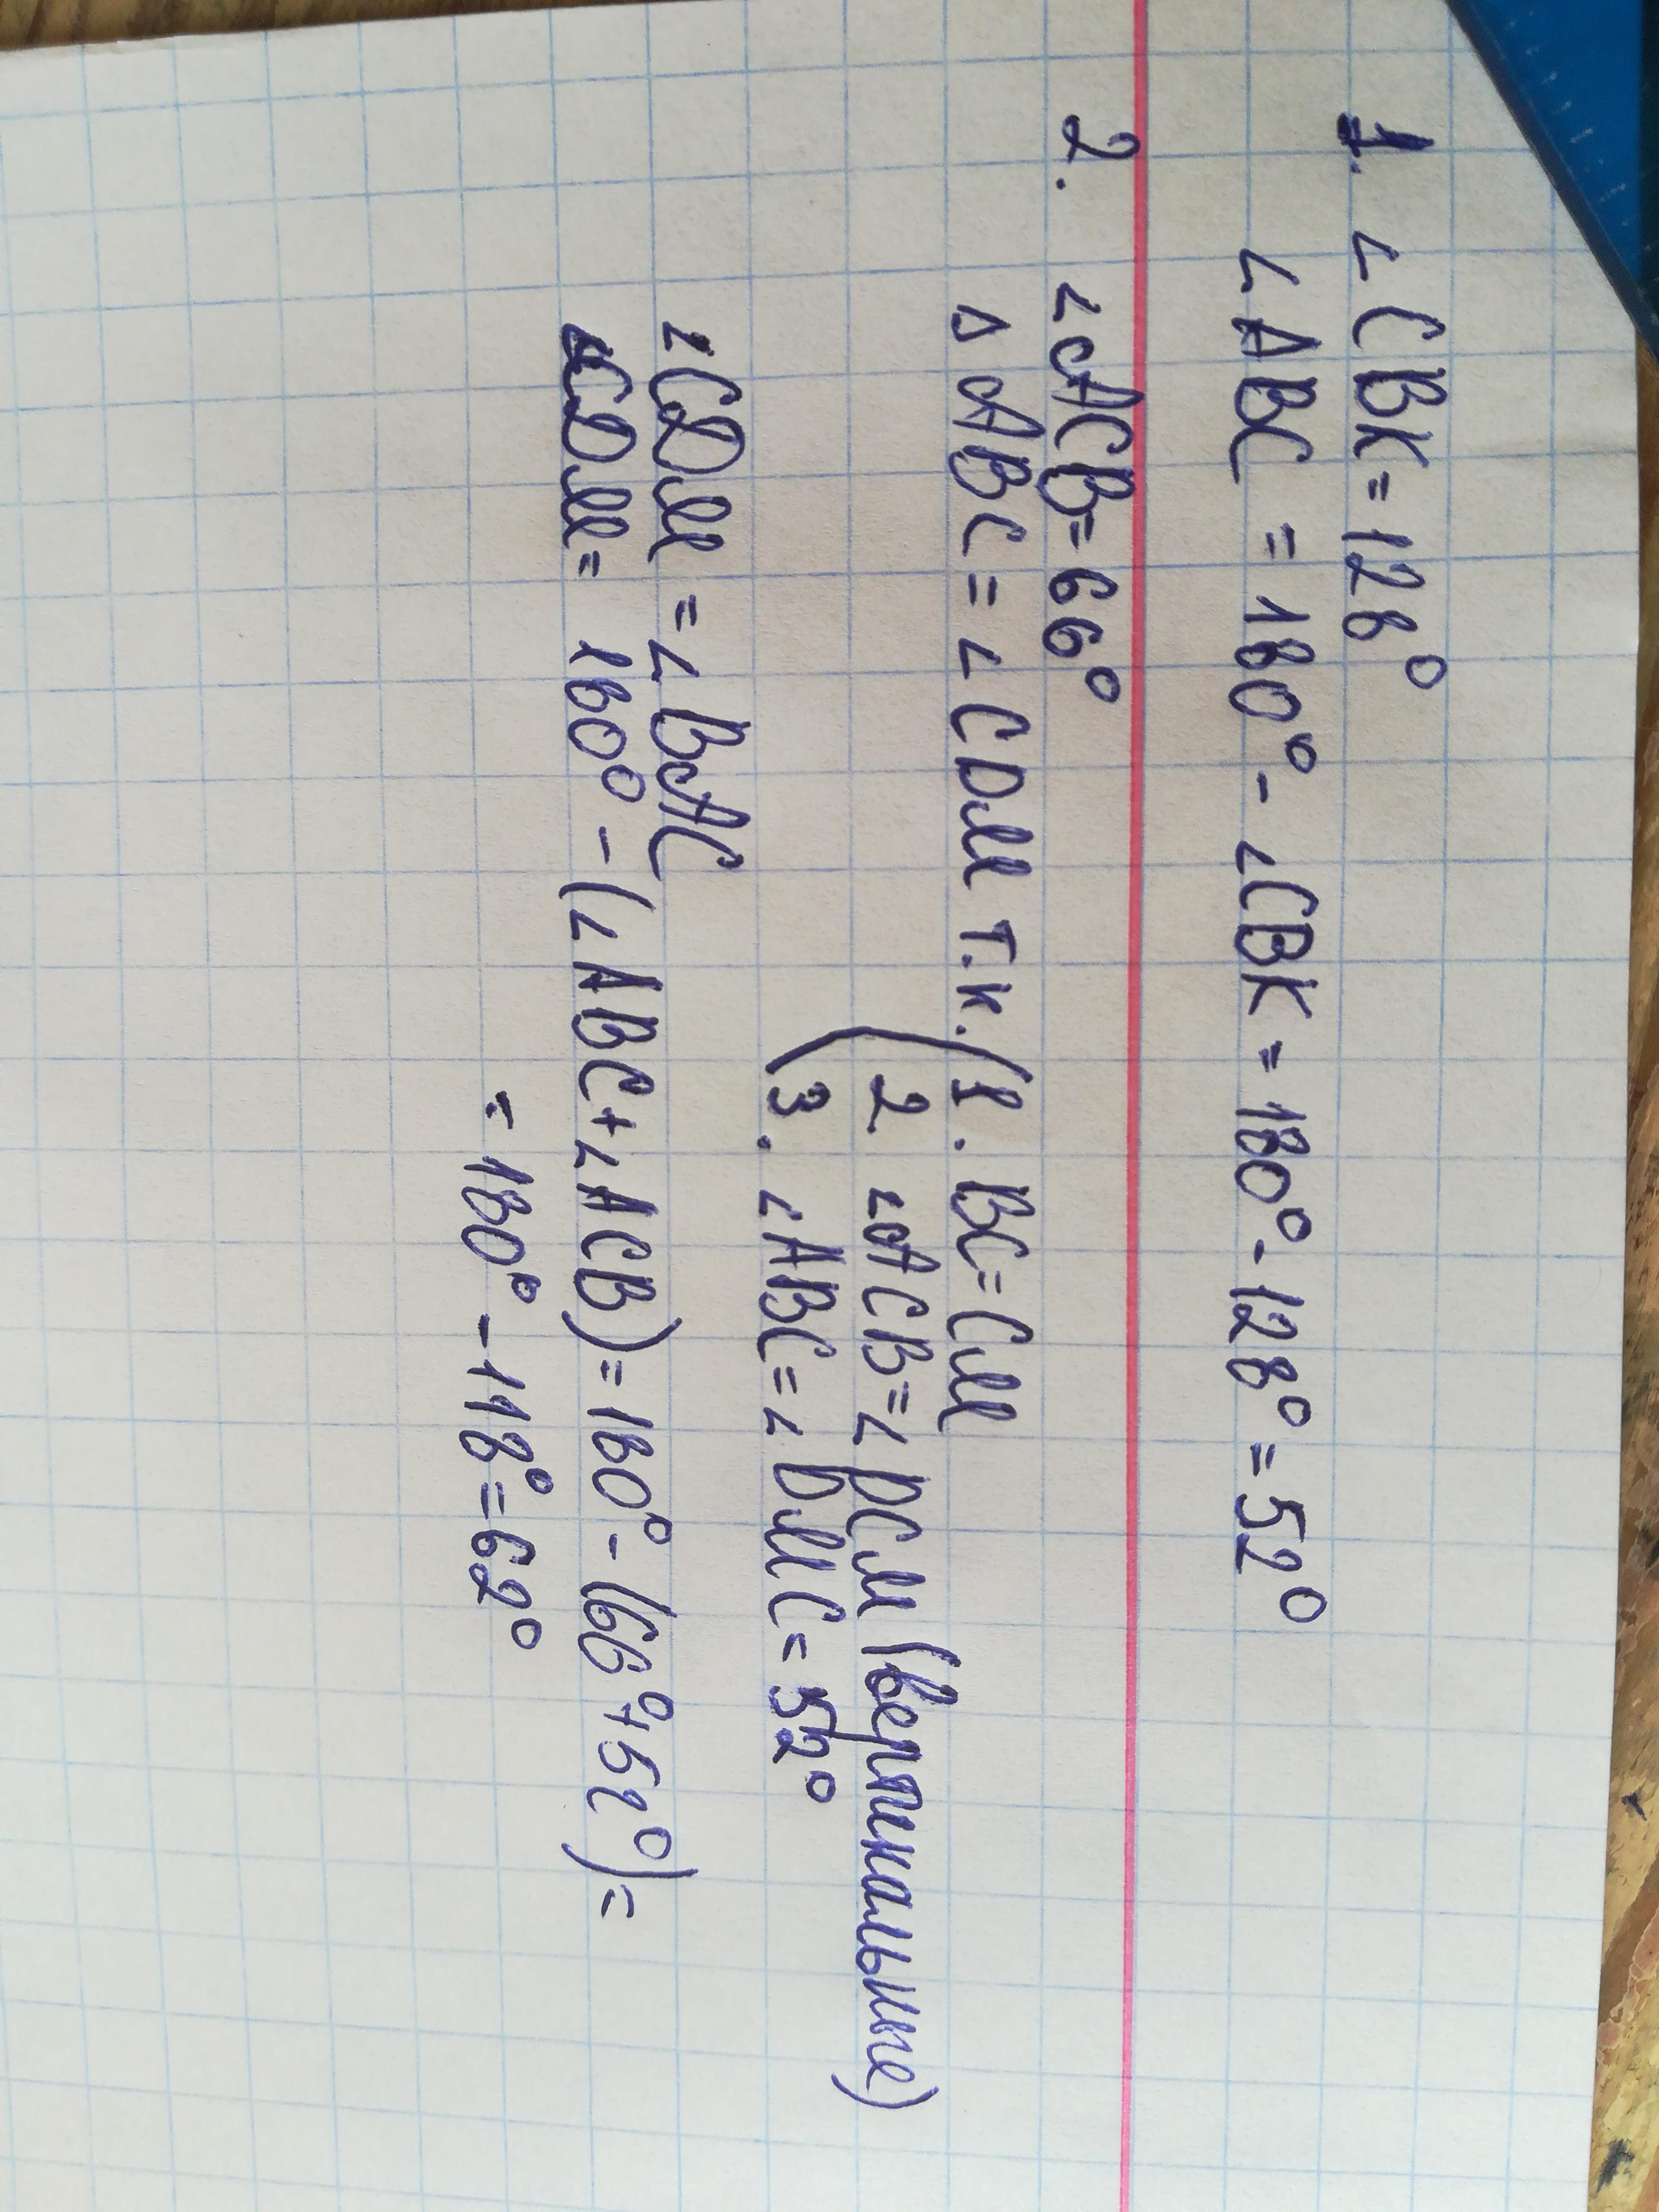 1. ∠CBK = 128°
∠ABC = 180° - ∠CBK = 180° - 128° = 52°
2. ∠ACB = 66°
∆ ABC = ∠CDM т.к. 1. BC = CM
2. ∠ACB = ∠DCM (вертикальные)
3. ∠ABC = ∠DMC = 52°
∠CDM = ∠BAC
∠CDM = 180° - (∠ABC + ∠ACB) = 180° - (66° + 52°) =
= 180° - 118° = 62°